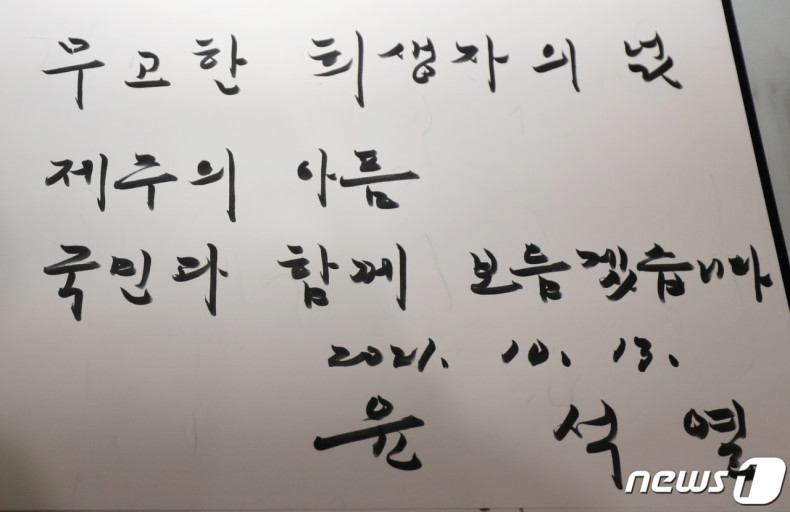 무고한 희생자의 넋
제주의 아픔
국민과 함께 보듬겠습니다
2021. 10. 13.
윤 석 열
news1